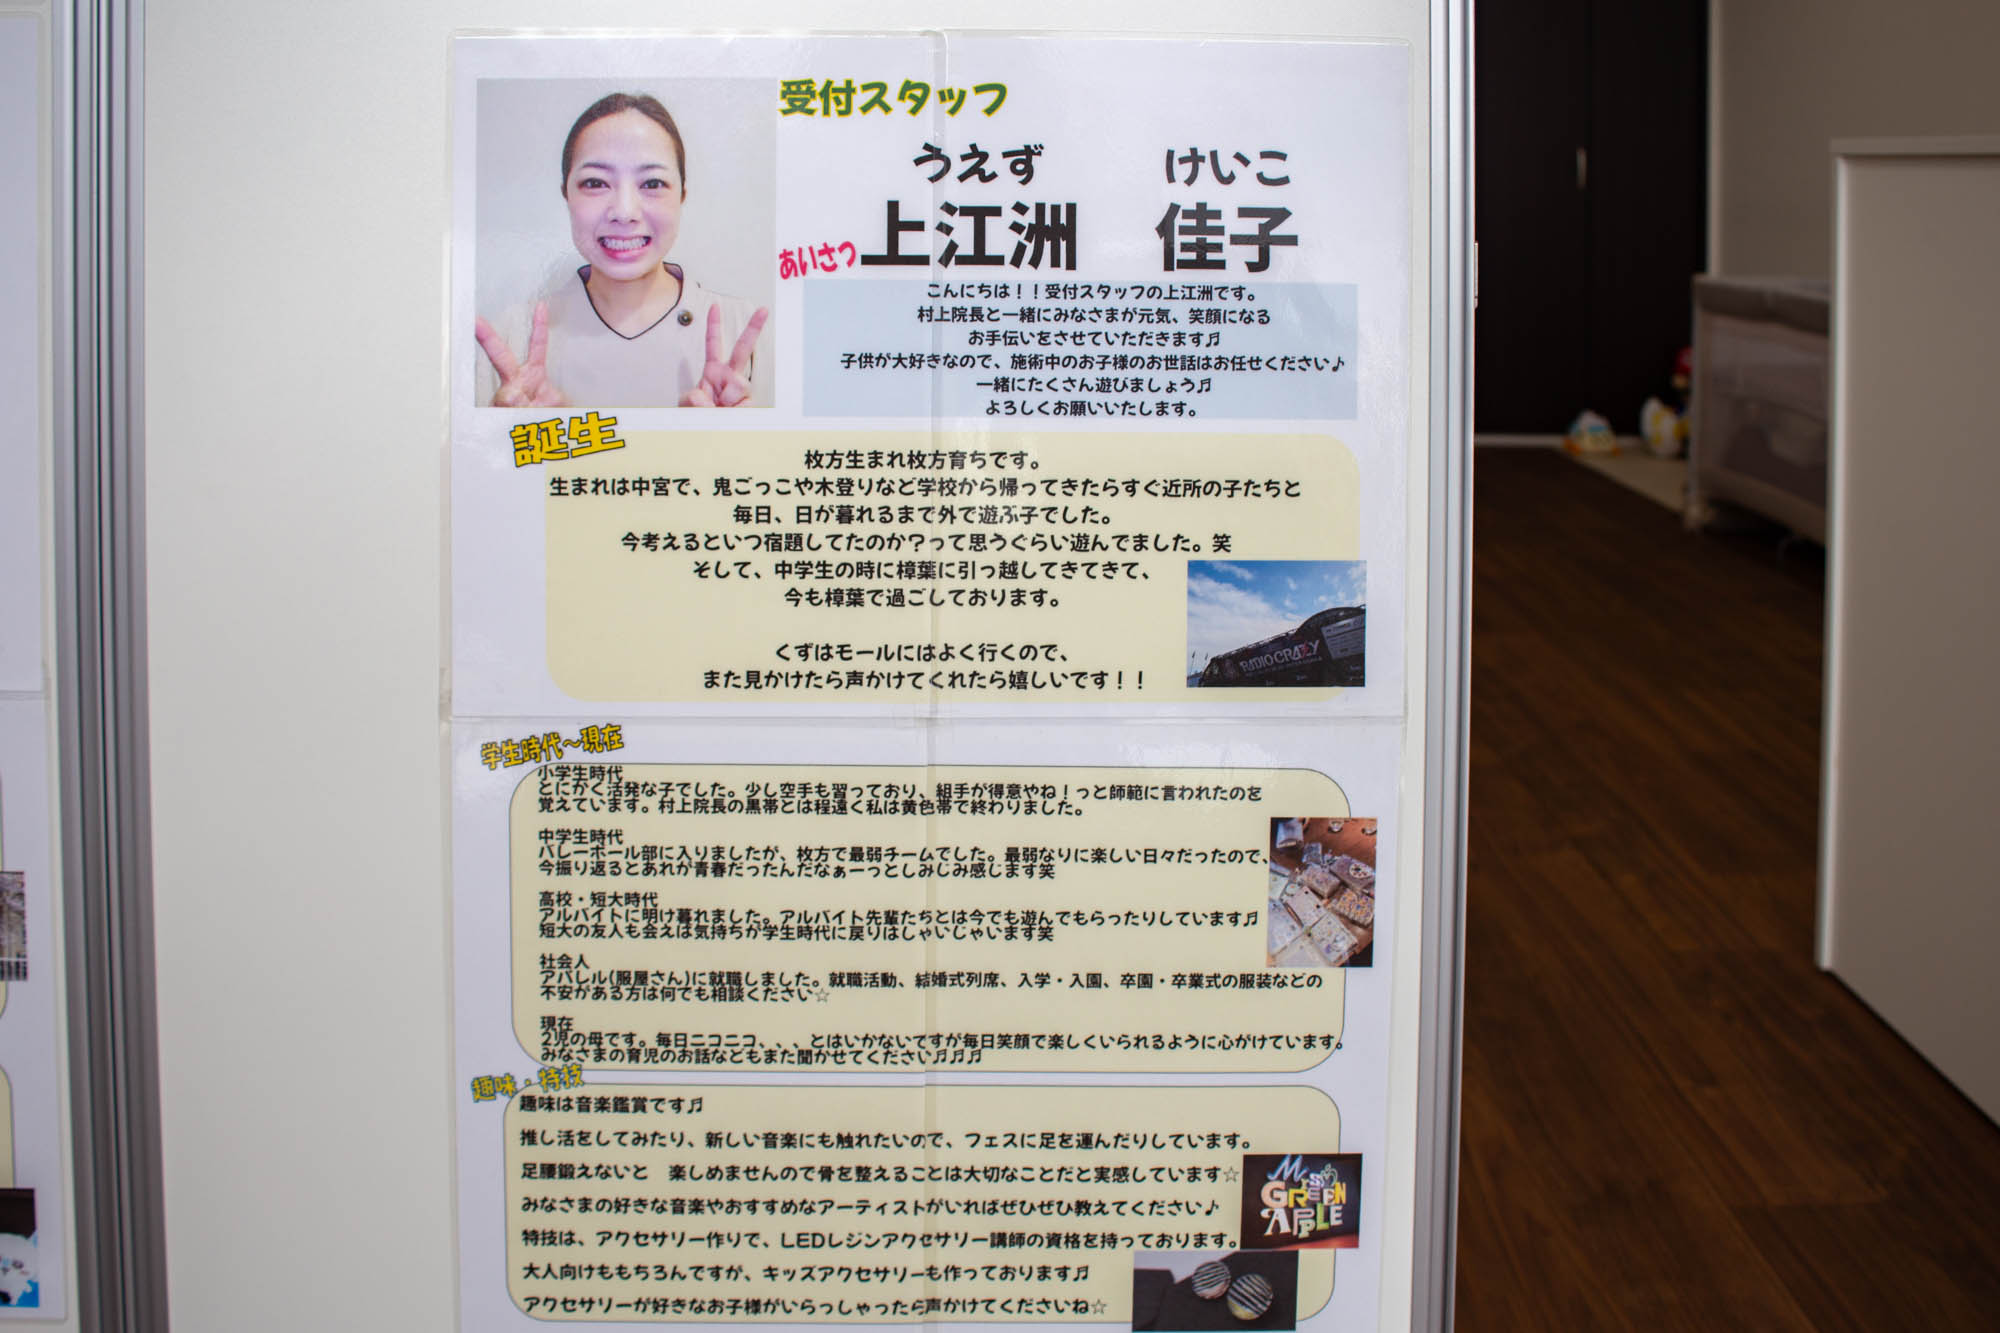 受付スタッフ
うえず けいこ
上江洲 佳子
あいさつ
こんにちは！！受付スタッフの上江洲です。
村上院長と一緒にみなさまが元気、笑顔になる
お手伝いをさせていただきます♬
子供が大好きなので、施術中のお子様のお世話はお任せください♪
一緒にたくさん遊びましょう♬
よろしくお願いいたします。
誕生
枚方生まれ枚方育ちです。
生まれは中宮で、鬼ごっこや木登りなど学校から帰ってきたらすぐ近所の子たちと
毎日、日が暮れるまで外で遊ぶ子でした。
今考えるといつ宿題してたのか？って思うぐらい遊んでました。笑
そして、中学生の時に樟葉に引っ越してきてきて、
今も樟葉で過ごしております。
くずはモールにはよく行くので、
また見かけたら声かけてくれたら嬉しいです！！
RADIO CRAZY
学生時代～現在
小学生時代
とにかく活発な子でした。少し空手も習っており、組手が得意やね！っと師範に言われたのを
覚えています。村上院長の黒帯とは程遠く私は黄色帯で終わりました。
中学生時代
バレーボール部に入りましたが、枚方で最弱チームでした。最弱なりに楽しい日々だったので、
今振り返るとあれが青春だったんだなぁーっとしみじみ感じます笑
高校・短大時代
アルバイトに明け暮れました。アルバイト先輩たちとは今でも遊んでもらったりしています♬
短大の友人も会えば気持ちが学生時代に戻りはしゃいじゃいます笑
社会人
アパレル(服屋さん)に就職しました。就職活動、結婚式列席、入学・入園、卒園・卒業式の服装などの
不安がある方は何でも相談ください☆
現在
2児の母です。毎日ニコニコ、、、とはいかないですが毎日笑顔で楽しくいられるように心がけています。
みなさまの育児のお話などもまた聞かせてください♬♬♬
趣味・特技
趣味は音楽鑑賞です♬
推し活をしてみたり、新しい音楽にも触れたいので、フェスに足を運んだりしています。
足腰鍛えないと　楽しめませんので骨を整えることは大切なことだと実感しています☆
みなさまの好きな音楽やおすすめなアーティストがいればぜひぜひ教えてください♪
Mrs. GREEN APPLE
特技は、アクセサリー作りで、LEDレジンアクセサリー講師の資格を持っております。
大人向けももちろんですが、キッズアクセサリーも作っております♬
アクセサリーが好きなお子様がいらっしゃったら声かけてくださいね☆